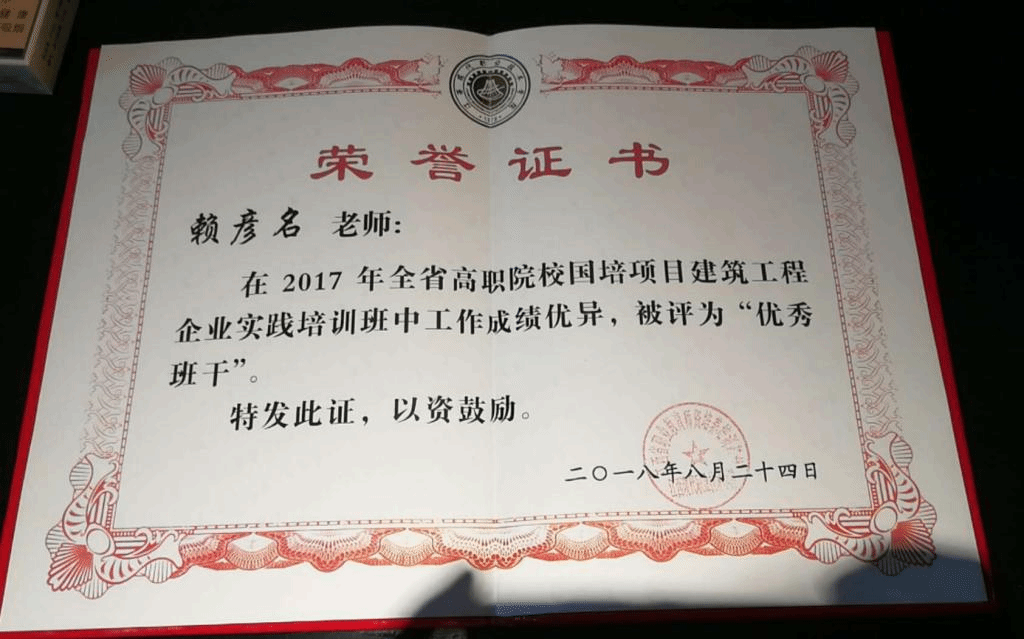 荣誉证书
赖彦名 老师:
在 2017 年全省高职院校国培项目建筑工程
企业实践培训班中工作成绩优异，被评为“优秀
班干”。
特发此证，以资鼓励。
二〇一八年八月二十四日